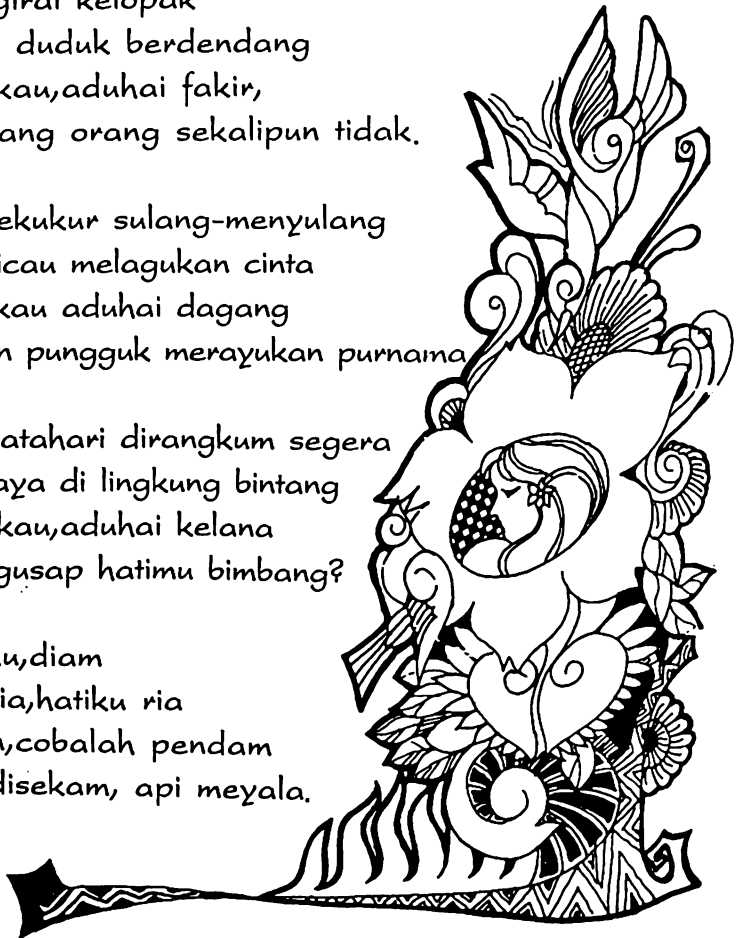 kelopak
duduk berdendang
kau,aduhai fakir,
ang orang sekalipun tidak.
ekukur sulang-menyulang
icau melagukan cinta
kau aduhai dagang
n pungguk merayukan purnama
atahari dirangkum segera
aya di lingkung bintang
kau,aduhai kelana
gusap hatimu bimbang?
u,diam
ia,hatiku ria
,cobalah pendam
disekam, api meyala.